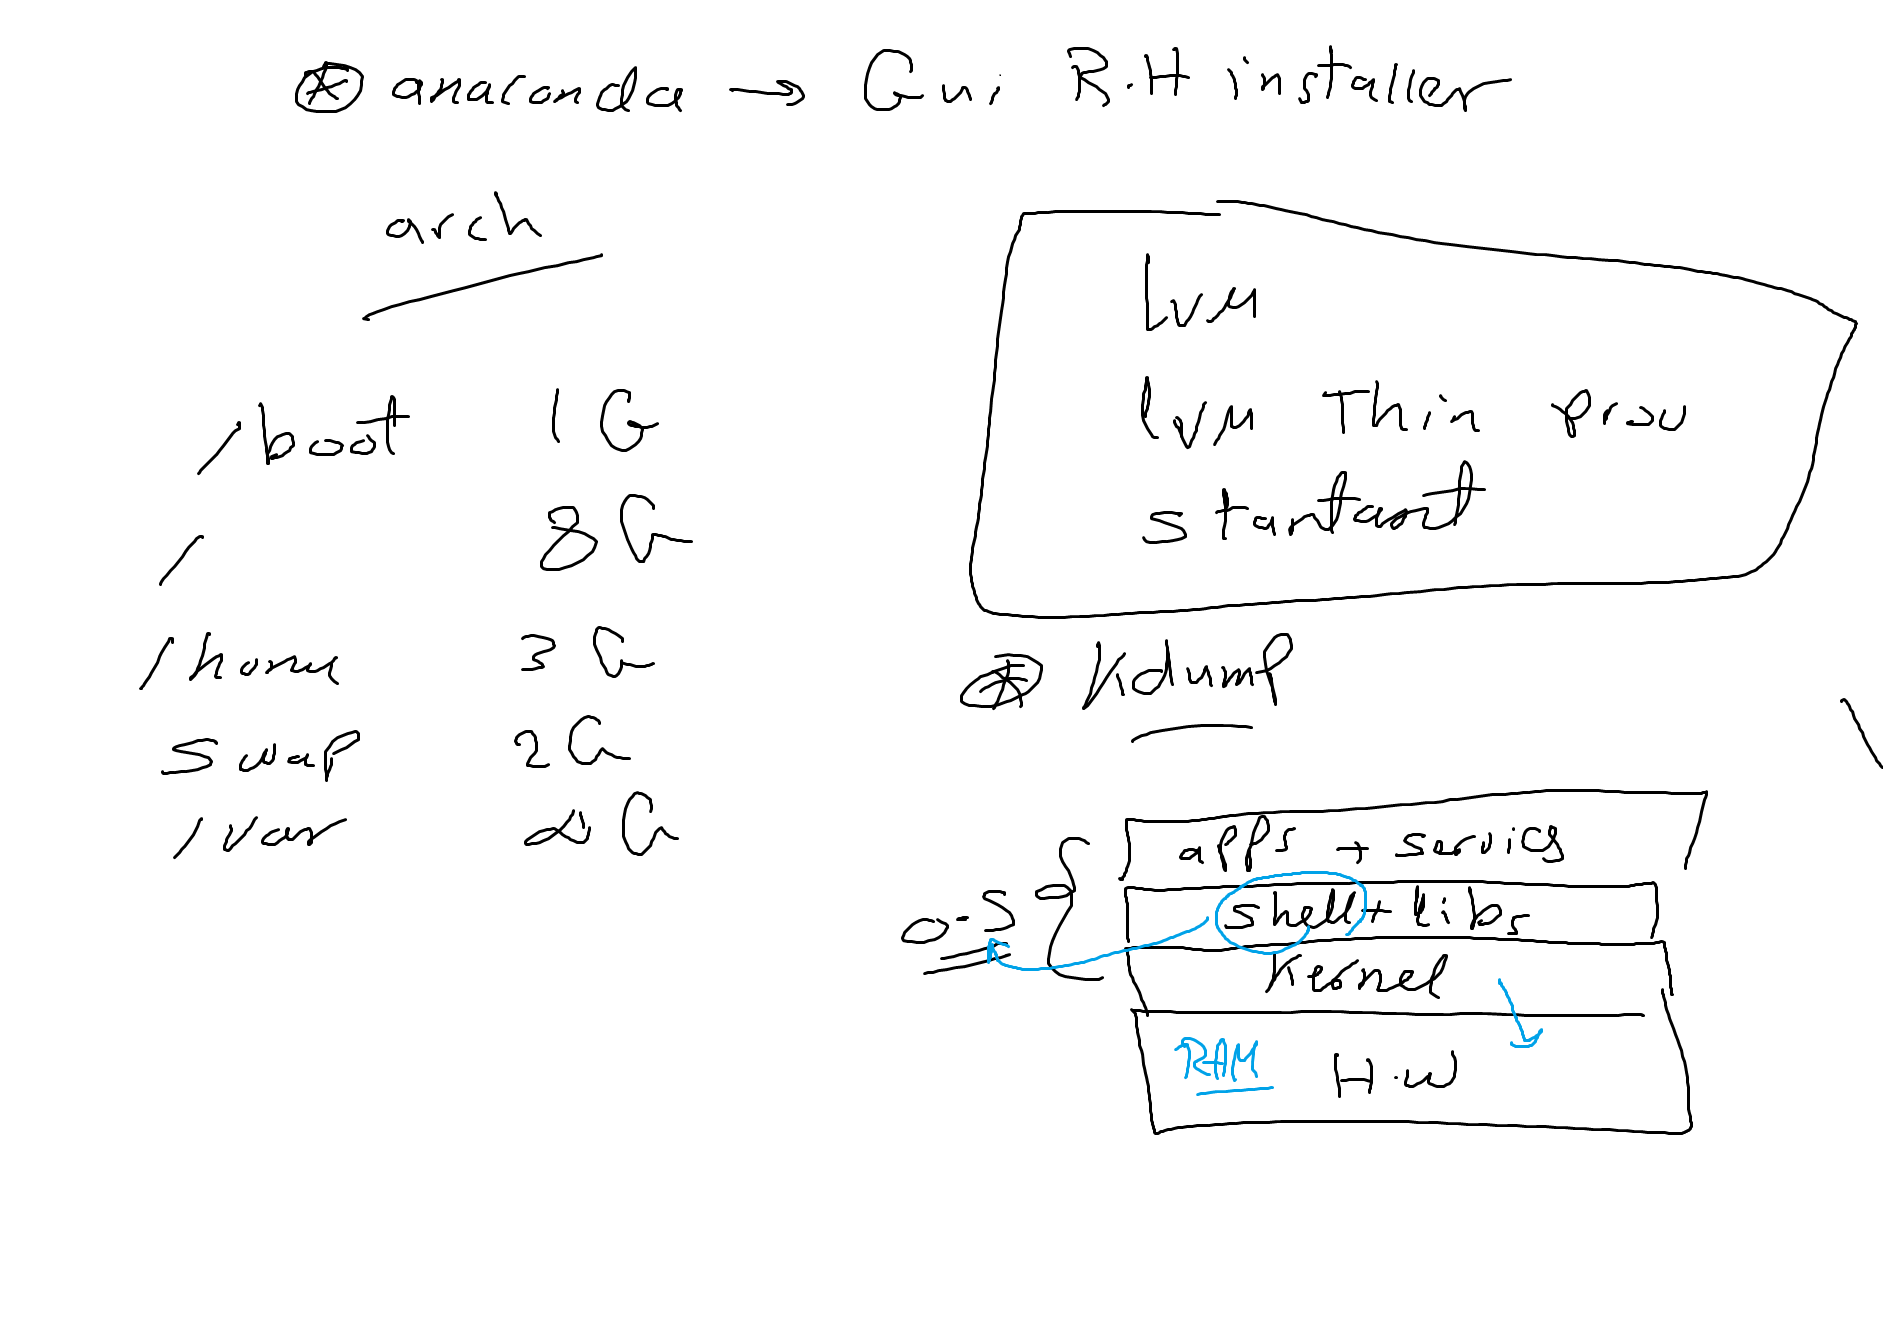 * anaconda → Gui R.H installer
arch
/boot 1G
/ 8G
/home 3G
swap 2G
/var G
lvM
lvM Thin prov
stantart
* Kdump
apps + servics
shell + libs
Kernel
RAM H.W
O.S